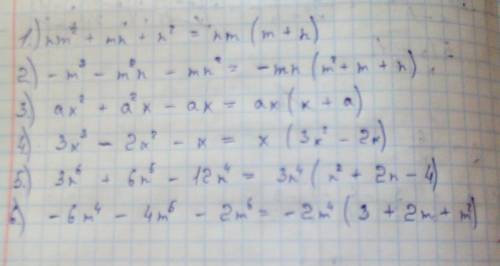 1.) nm² + mn² + n² = nm (m + n)
2) -m³ - m²n - mn² = -mn (m² + m + n)
3.) ax² + a²x - ax = ax (x + a)
4) 3x³ - 2x² - x = x (3x² - 2x)
5.) 3n⁶ + 6n⁵ - 12n⁴ = 3n⁴ (n² + 2n - 4)
6) -6m⁴ - 4m⁵ - 2m⁶ = -2m⁴ (3 + 2m + m²)